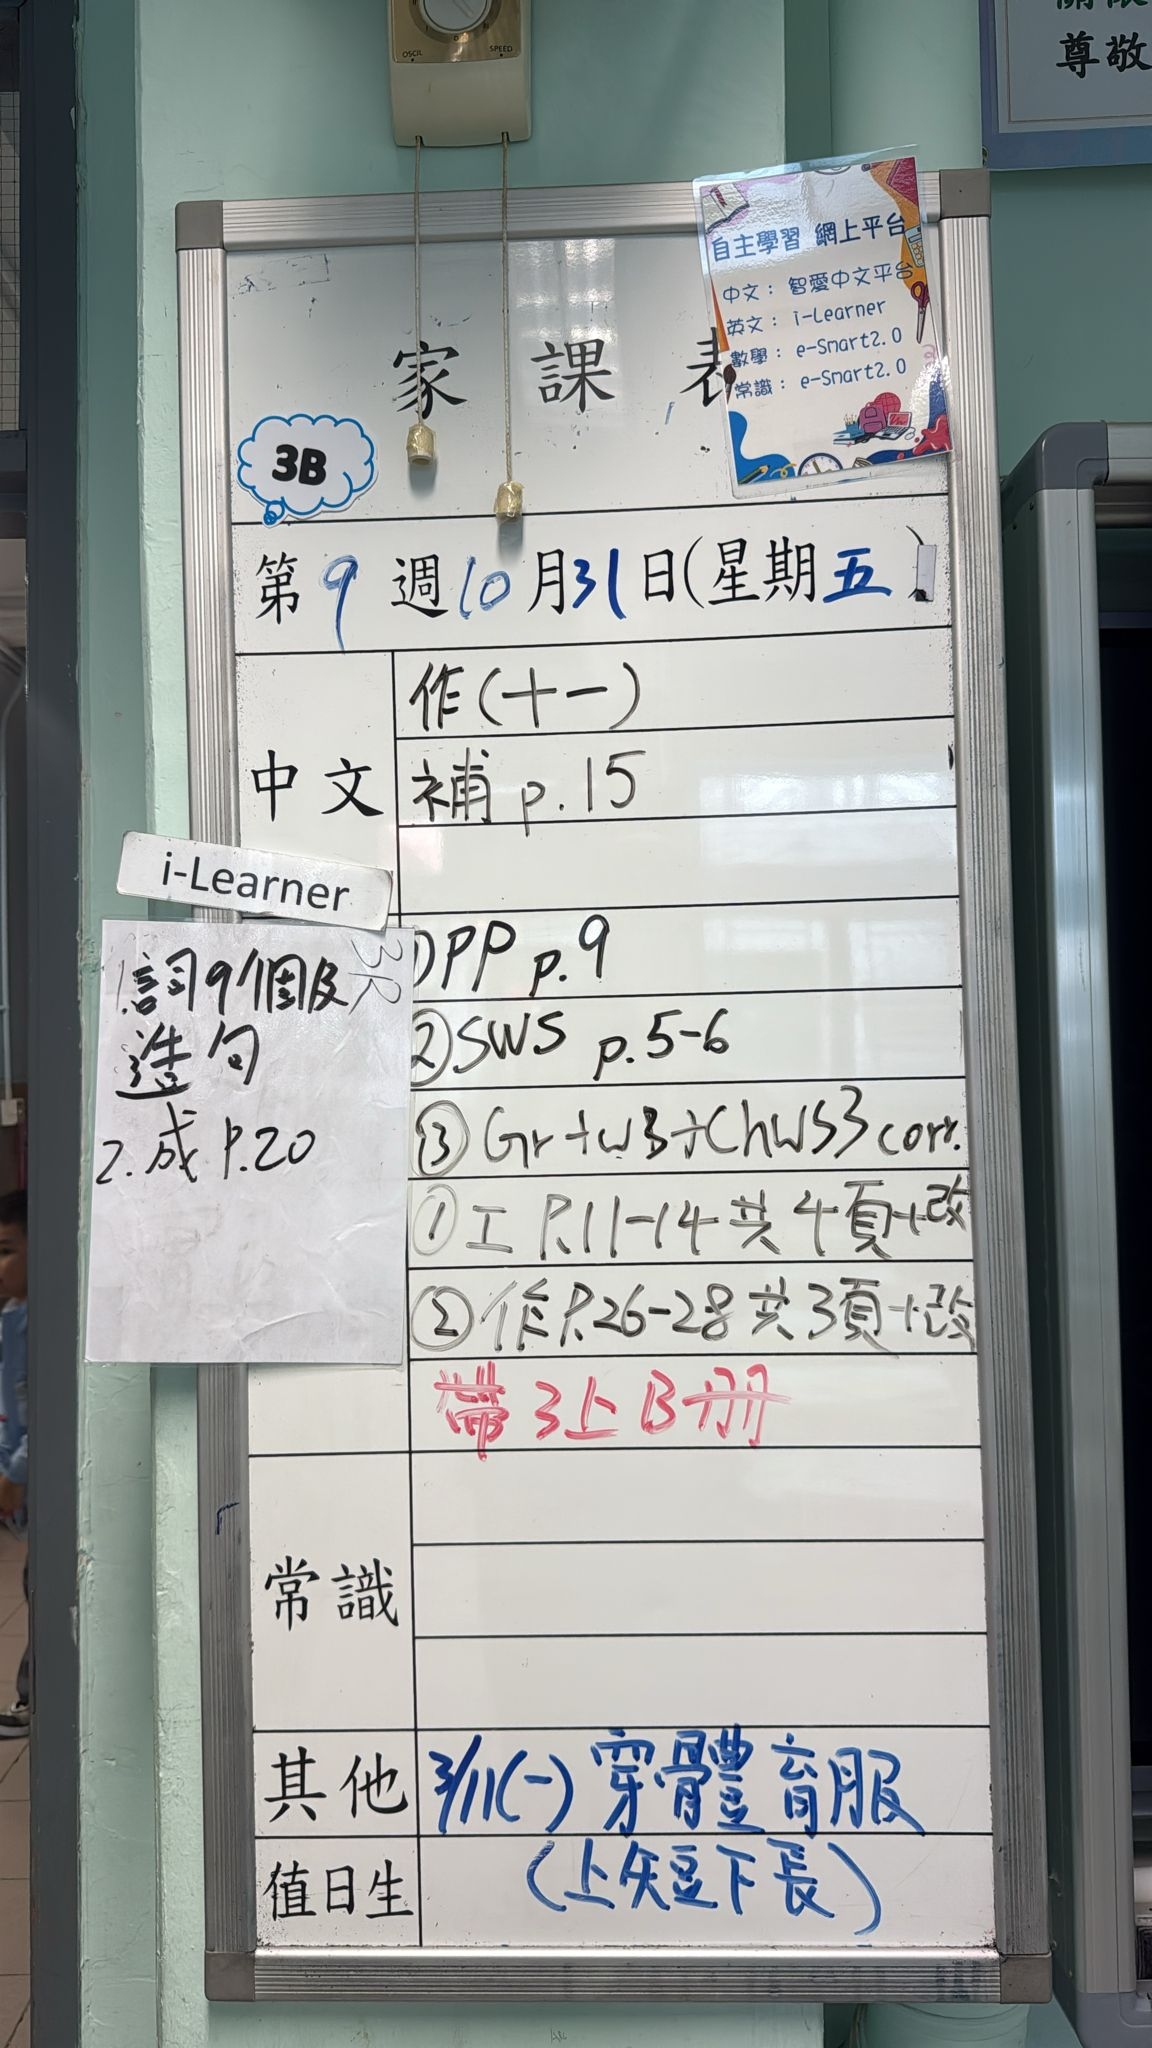 OSCIL
SPEED
尊敬
自主學習 網上平台
中文：智愛中文平台
英文：i-Learner
數學：e-Smart2.0
常識：e-Smart2.0
家課表
3B
第9週10月31日(星期五)
中文
作(十一)
補 p.15
i-Learner
3R
1.詞9個及
造句
2.成 P.20
①PP p.9
②SWS p.5-6
③Gr+w3+ChWS3 corr.
①工 P.11-14共4頁+改
②作P.26-28共3頁+改
帶3上B冊
常識
其他
3/11(一)穿體育服
值日生
(上短下長)